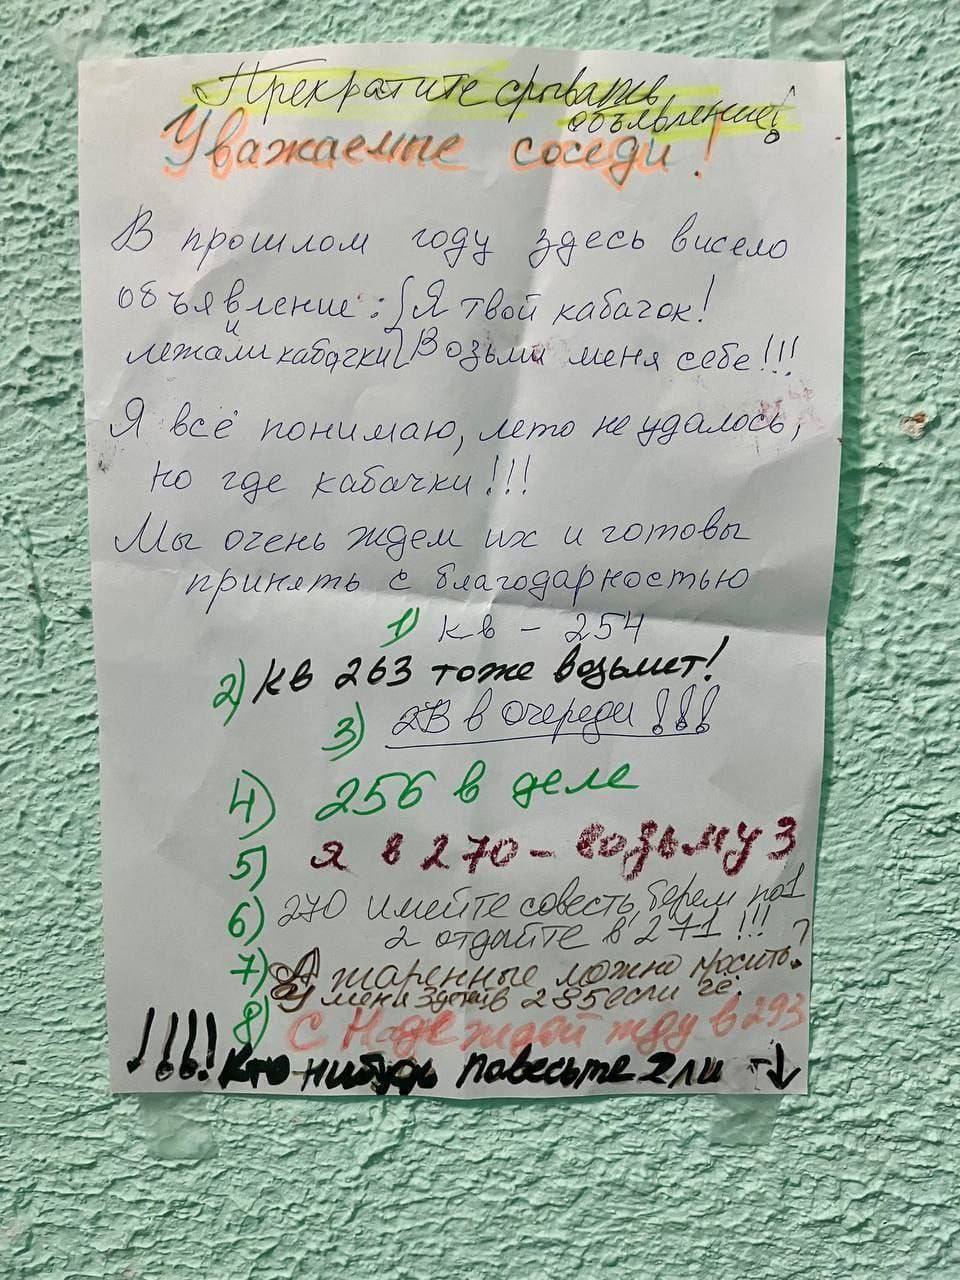 Прекратите срывать
объявление!
Уважаемые соседи!
В прошлом году здесь висело
объявление: Я твой кабачок!
и
лежали кабачки Возьми меня себе!!!
Я всё понимаю, лето не удалось,
но где кабачки!!!
Мы очень ждем их и готовы
принять с благодарностью
1) кв - 254
2) кв 263 тоже возьмет!
3) 2В в очереди!!!
4) 256 в деле
5) я в 270 - возьму 3
6) 270 имейте совесть, берем по 1
2 отдайте в 271!!!
7) А жаренные можно просить?
У меня 3 детей в 235 если чё.
8) С Надеждой жду в 293
!!!! Кто нибудь повесьте 2 ли